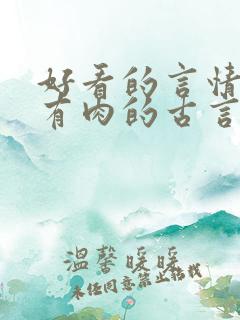 好看的言情
有肉的古言
温馨暖暖
未经同意禁止转载